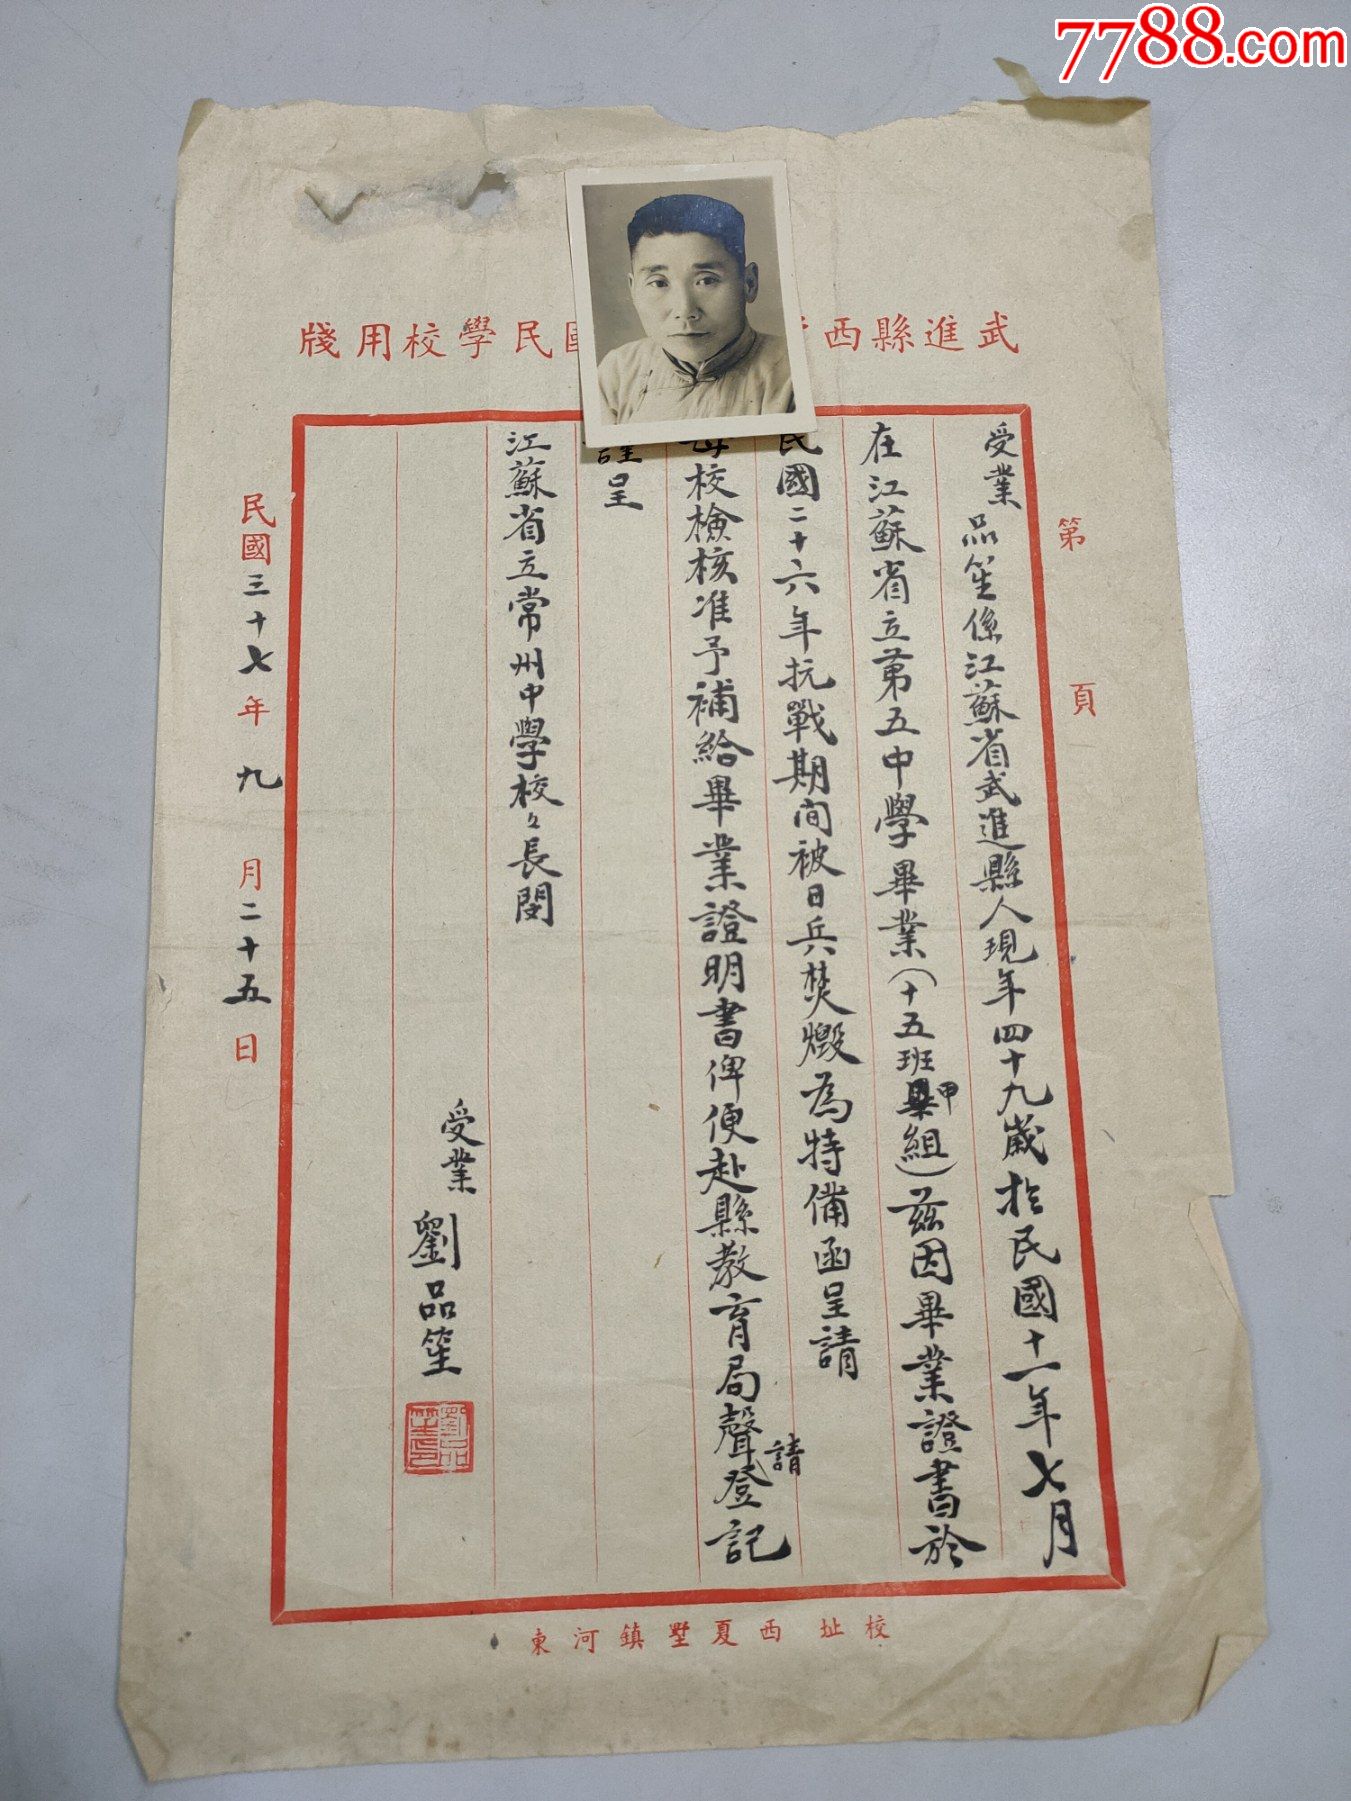 7788.com
武進縣西
國民學校用牋
第 頁
受業品笙係江蘇省武進縣人現年四十九歲於民國十一年七月
在江蘇省立第五中學畢業（十五班甲組）茲因畢業證書於
民國二十六年抗戰期间被日兵焚燬為特備函呈請
母校檢核准予補給畢業證明書俾便赴縣教育局聲請登記
謹呈
江蘇省立常州中學校々長閔
受業 劉品笙
民國三十七年九月二十五日
校址西夏墅鎮河東